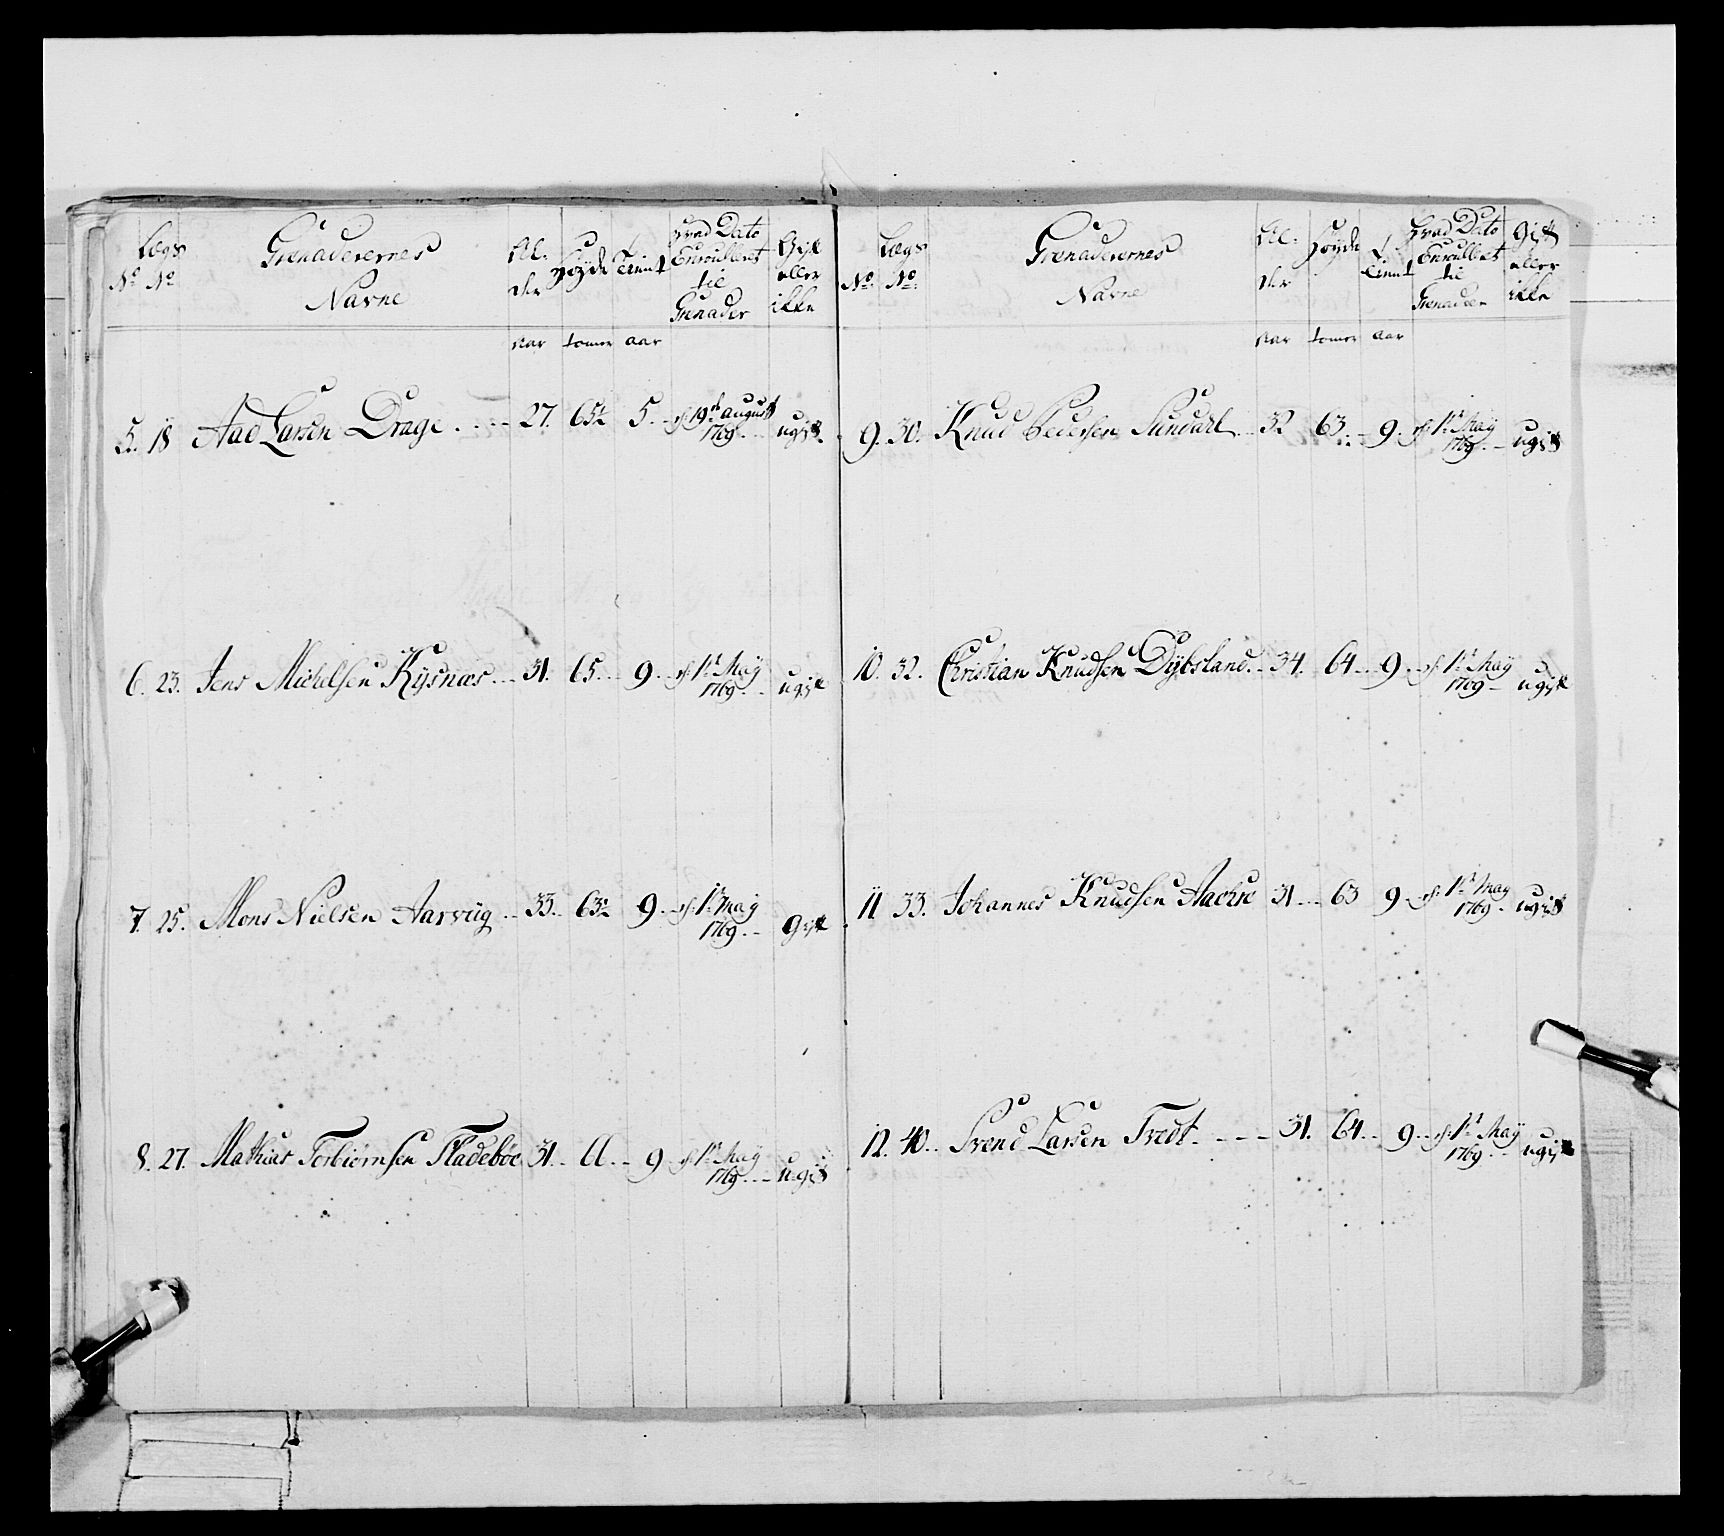 Lægs
No No
Grenaderernes
Navne
Al-
der
Høyde
Tient
Hvad Dato
Enroulleret
til
Grenader
Gift
eller
ikke
Aar tomer aar
5. 18 Aad Larsen Drage 27. 5 19de august
1769 ugift
6. 23. Jens Michelsen Kysnæs 31. 65 9 1st May
1769 ugift
7. 25. Mons Nielsen Aarviig 33. 63½ 9 1st May
1769 gift
8. 27. Mathias Torbiørnsen Fladebøe 31 9 1st May
1769 ugift
Lægs
No. No.
Grenaderernes
Navne
Al-
der
Høyde
Tient
Hvad Dato
Enroulleret
til
Grenadeer
Gift
eller
ikke
Aar tomer aar
9. 30. Knud Pedersen 32 63 9 1st May
1769 ugift
10. 32. Christian Knudsen Dybsland 34. 64 9 1st May
1769 ugift
11 33. Johannes Knudsen 31 63 9 1st May
1769 ugift
12. 40. Svend Larsen Tvedt 31. 64 9 1st May
1769 ugift